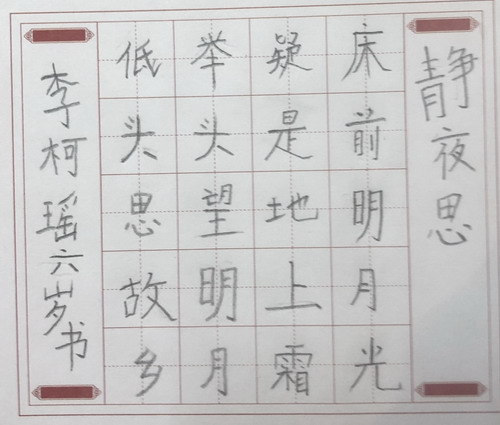 静夜思
床前明月光
疑是地上霜
举头望明月
低头思故乡
李柯瑶六岁书